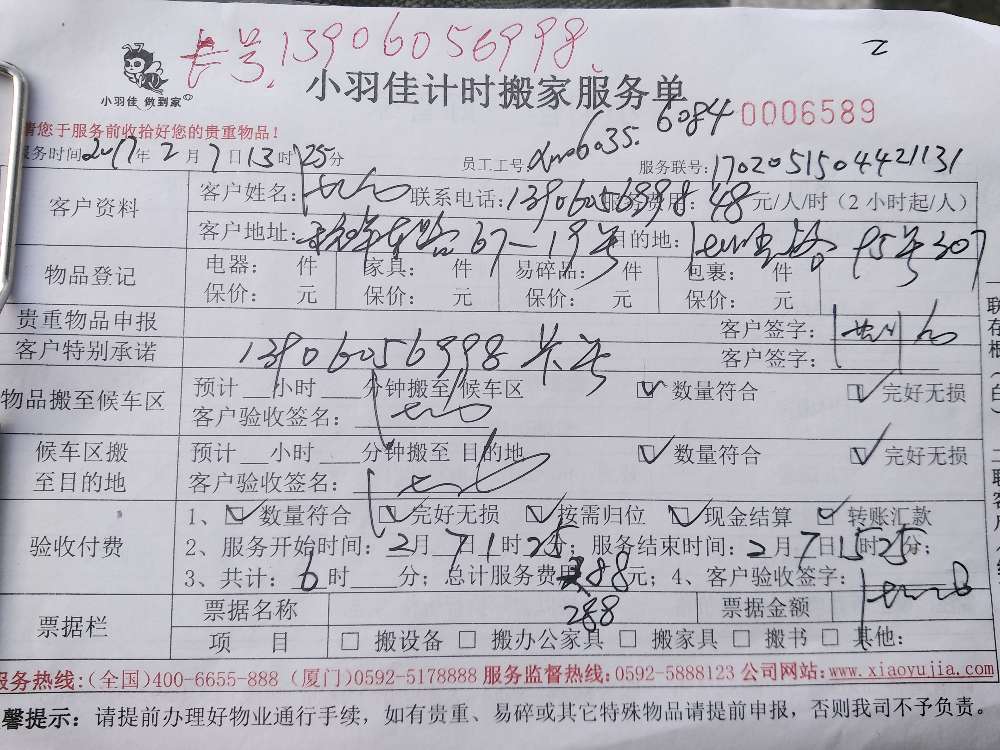 卡号.13906056998.
小羽佳 做到家
小羽佳计时搬家服务单
请您于服务前收拾好您的贵重物品！
6084 0006589
服务时间2017年2月7日13时25分 员工工号: xm6035. 服务联号:1702051504421131
客户资料
客户姓名: 联系电话:13906056998 服务费用: 48元/人/时（2 小时起/人）
客户地址: 67-19号 目的地: 95号307
物品登记
电器: 件 家具: 件 易碎品: 件 包裹: 件
保价: 元 保价: 元 保价: 元 保价: 元
贵重物品申报 客户签字:
客户特别承诺 13906056998 卡号 客户签字:
物品搬至候车区
预计 小时 分钟搬至 候车区 数量符合 完好无损
客户验收签名:
候车区搬至目的地
预计 小时 分钟搬至 目的地 数量符合 完好无损
客户验收签名:
验收付费
1、 数量符合 完好无损 按需归位 现金结算 转账汇款
2、服务开始时间: 2月7日1时25分; 服务结束时间: 2月7日15时25分;
3、共计: 6时 分; 总计服务费用 288元; 4、客户验收签字:
288
票据栏
票据名称 票据金额
项 目 □ 搬设备 □ 搬办公家具 □ 搬家具 □ 搬书 □ 其他:
服务热线:(全国)400-6655-888 (厦门)0592-5178888 服务监督热线:0592-5888123 公司网站:www.xiaoyujia.com
馨提示: 请提前办理好物业通行手续，如有贵重、易碎或其它特殊物品请提前申报，否则我司不予负责。